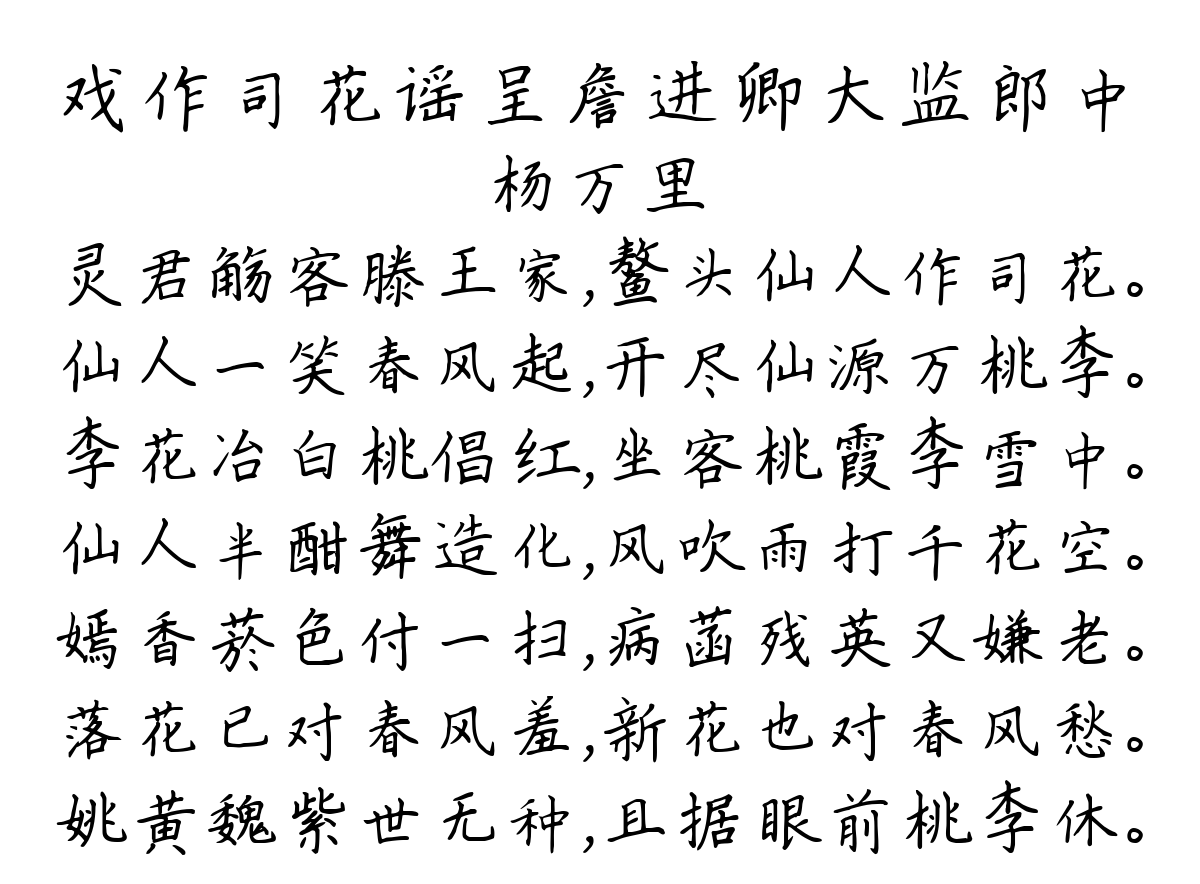 戏作司花谣呈詹进卿大监郎中
杨万里
灵君觞客滕王家,鳌头仙人作司花。
仙人一笑春风起,开尽仙源万桃李。
李花冶白桃倡红,坐客桃霞李雪中。
仙人半酣舞造化,风吹雨打千花空。
嫣香菸色付一扫,病菡残英又嫌老。
落花已对春风羞,新花也对春风愁。
姚黄魏紫世无种,且据眼前桃李休。